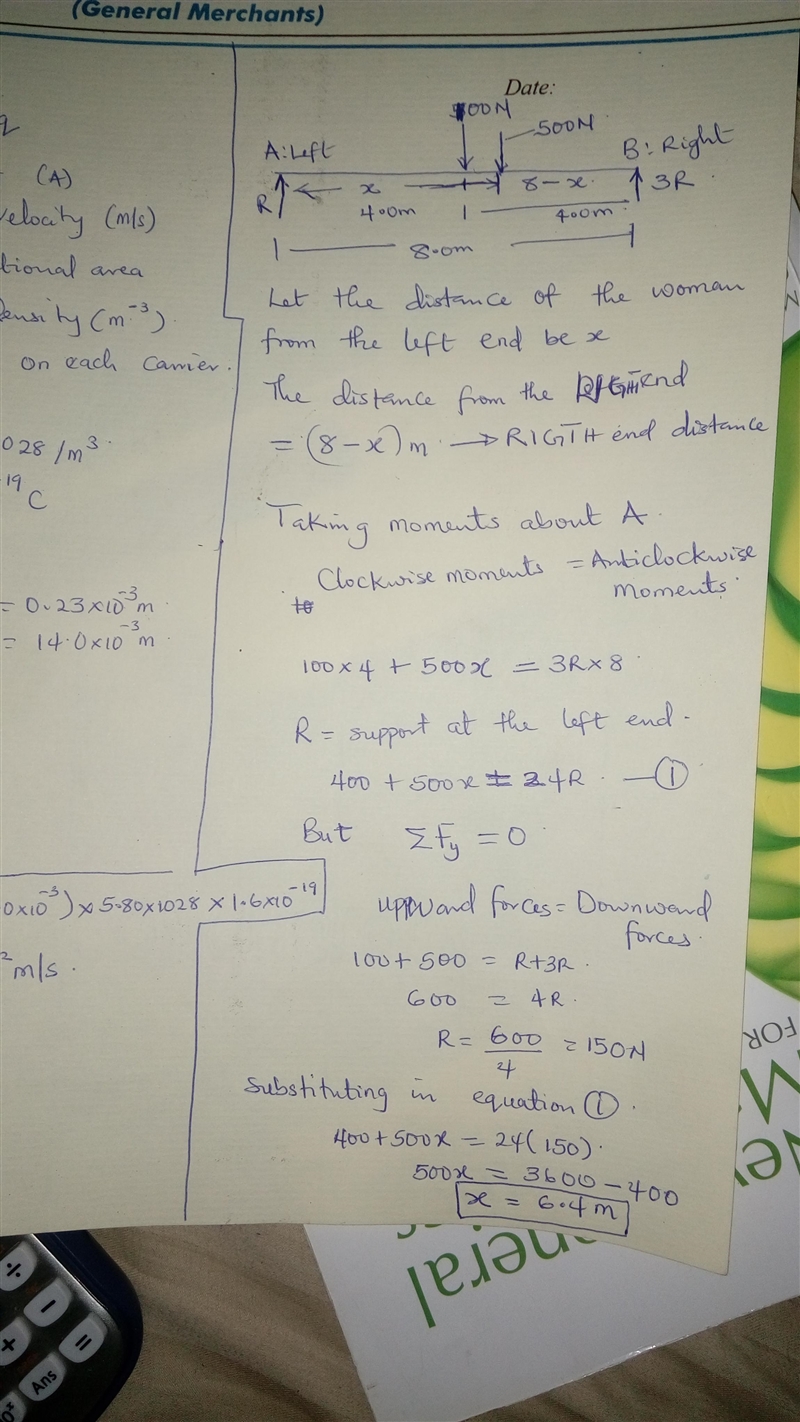 (General Merchants)
Date:
(A)
velocity (m/s)
tional area
Density (m⁻³).
on each carrier.
028/m³.
⁻¹⁹ C
= 0.23x10⁻³m
= 14.0x10⁻³m
0x10⁻³) x 5.80x1028 x 1.6x10⁻¹⁹
² m/s.
100N
500N
A: Left
B: Right
R
x
8-x
3R
4.0m
4.0m
8.0m
Let the distance of the woman
from the left end be x
The distance from the RIGTH end
= (8-x)m → RIGTH end distance
Taking moments about A.
Clockwise moments = Anticlockwise
moments.
100x4 + 500x = 3Rx8.
R = support at the left end.
400 + 500x = 24R. — ①
But ΣFy = 0
upward forces = Downward
forces.
100+500 = R+3R.
600 = 4R.
R = 600/4 = 150N
Substituting in equation ①.
400+500x = 24(150).
500x = 3600-400
x = 6.4m
eneral
FOR
÷
+
=
Ans